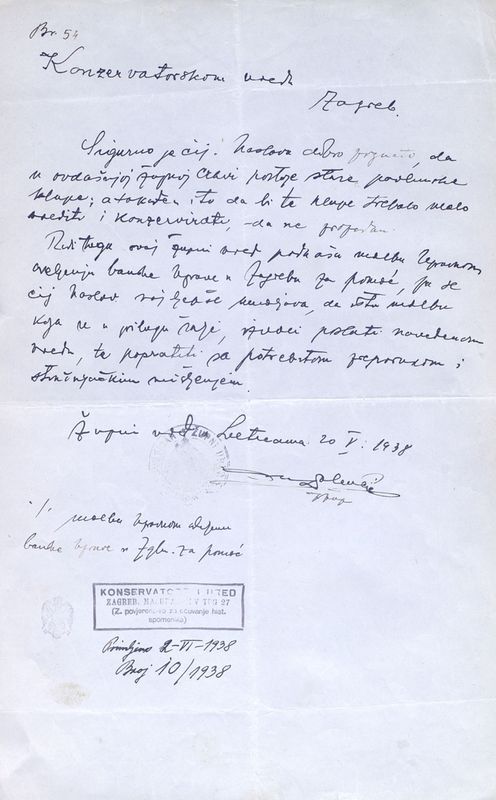 Br. 54
Konzervatorskom uredu
Zagreb.
Sigurno je cij. Naslovu dobro poznato, da
u ovdašnjoj župnoj crkvi postoje stare pavlinske
klupe; a također i to da bi te klupe trebalo malo
urediti i konzervirati, - da ne propadnu.
Radi toga ovaj župni ured podnaša molbu Upravnom
odjeljenju banske uprave u Zagrebu za pomoć, pa se
cij. Naslov najljepše umoljava, da istu molbu
koja se u prilogu šalje, izvoli poslati navedenom
uredu, te popratiti sa potrebitom preporukom i
stručnjačkim mišljenjem.
Župni ured 20 V. 1938
župnik
·/· molba Upravnom odjelenju
banske uprave u Zgbu. za pomoć
KONSERVATORSKI URED
ZAGREB, 27
(Z. povjerenstvo za očuvanje hist.
spomenika)
Primljeno 2-VI-1938
Broj 10/1938